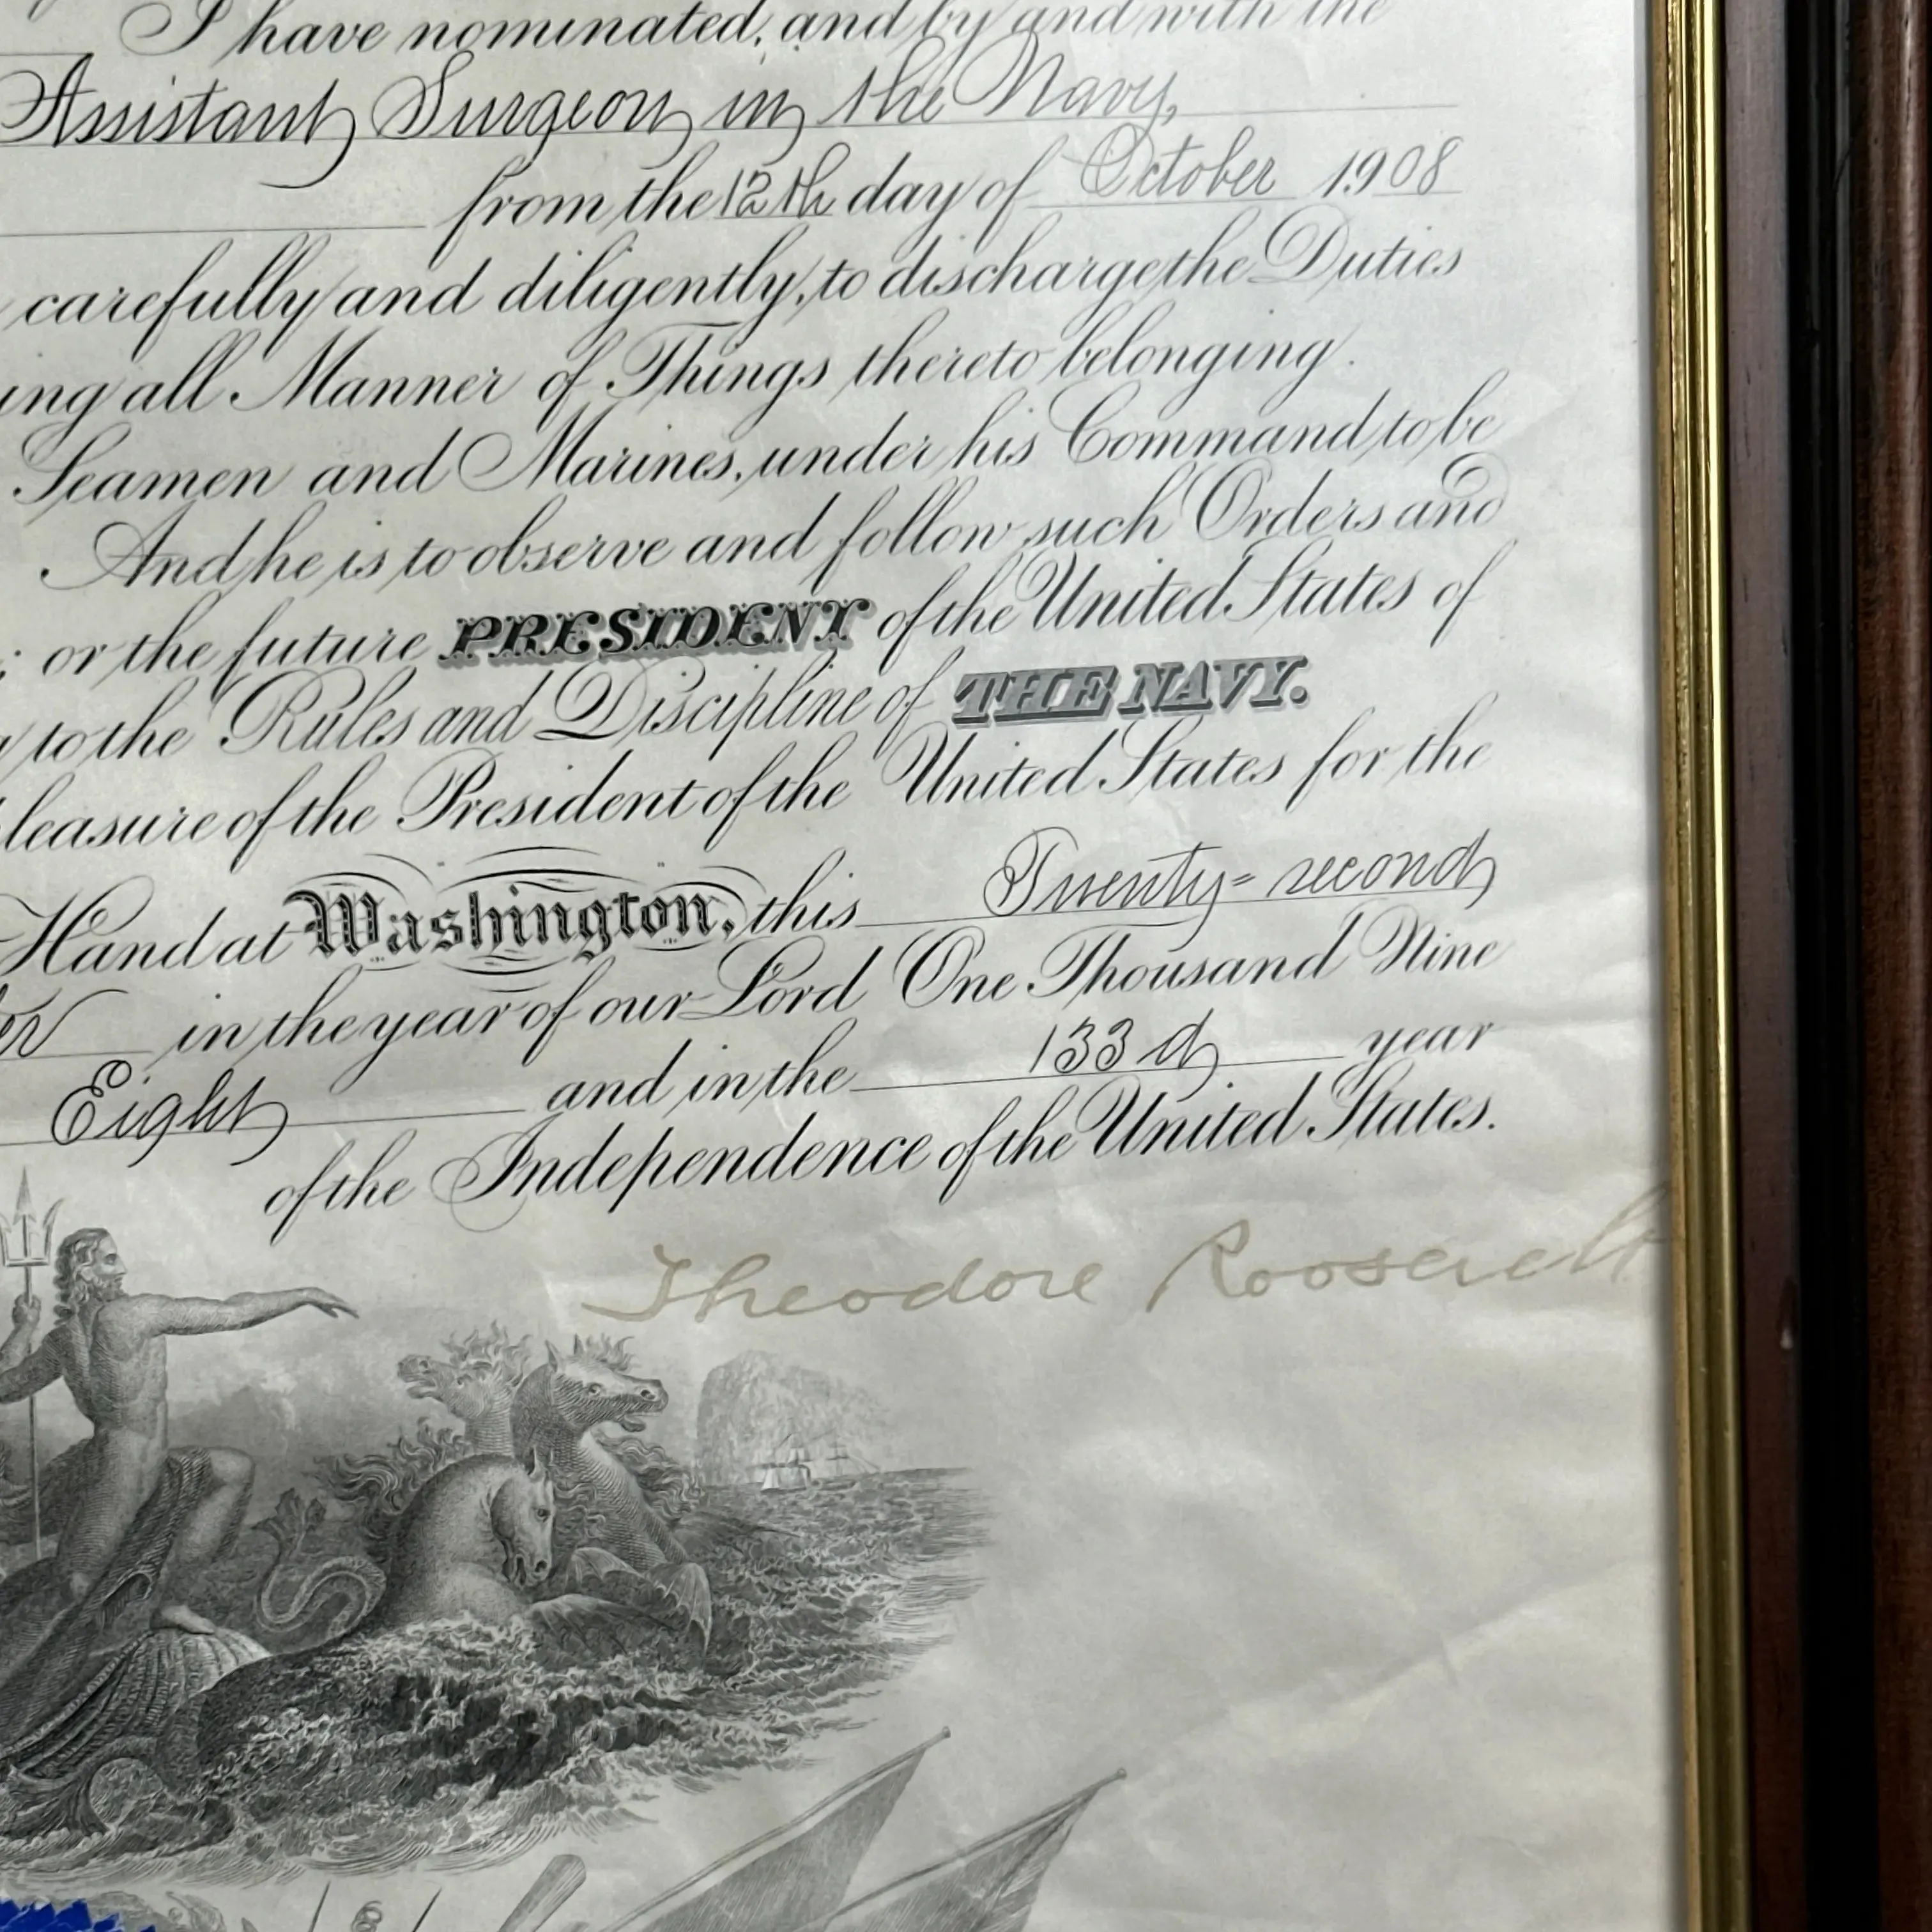 I have nominated, and by and with the
Assistant Surgeon in the Navy,
from the 12th day of October 1908
carefully and diligently, to discharge the Duties
ing all Manner of Things thereto belonging.
Seamen and Marines, under his Command to be
And he is to observe and follow such Orders and
; or the future PRESIDENT of the United States of
to the Rules and Discipline of THE NAVY.
leasure of the President of the United States for the
Hand at Washington, this Twenty=second
er in the year of our Lord One Thousand Nine
Eight and in the 133d year
of the Independence of the United States.
Theodore Roosevelt